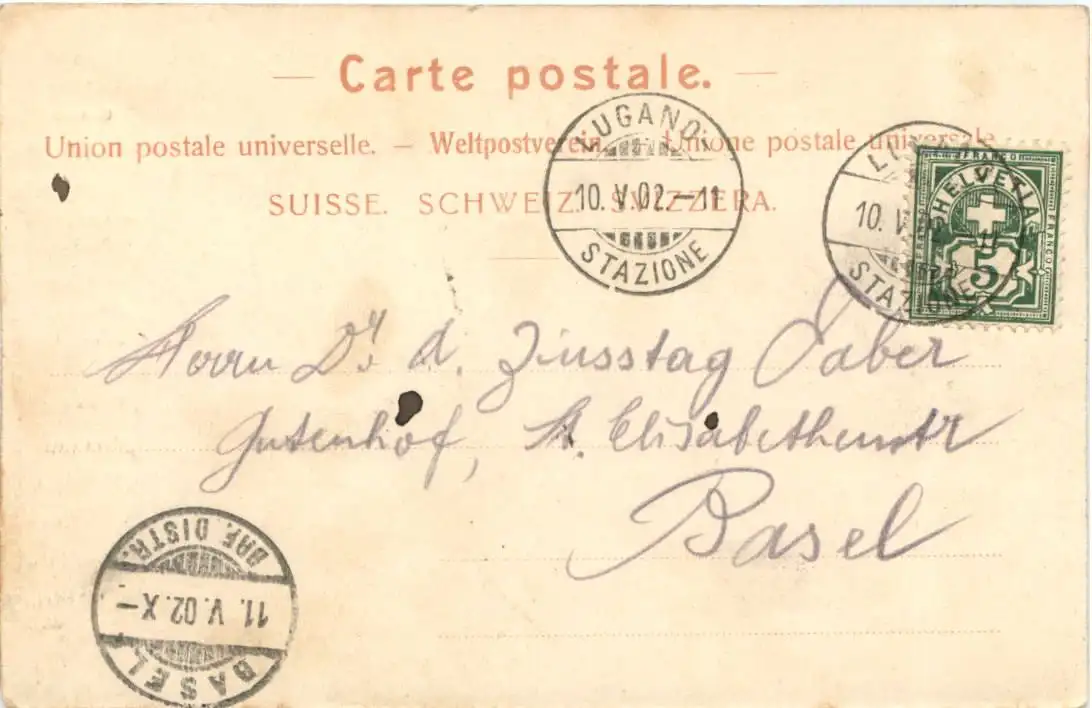 — Carte postale. —
Union postale universelle. — Weltpostverein. — Unione postale universale
SUISSE. SCHWEIZ. SVIZZERA.
LUGANO
10. V. 02. — 11
STAZIONE
10. V.
STAZIONE
FRANCO
HELVETIA
FRANCO
5
Herrn Dr. A. Zinsstag Faber
Gutenhof, St. Elisabethenstr
Basel
BRF. DISTR.
11. V. 02. X —
BASEL